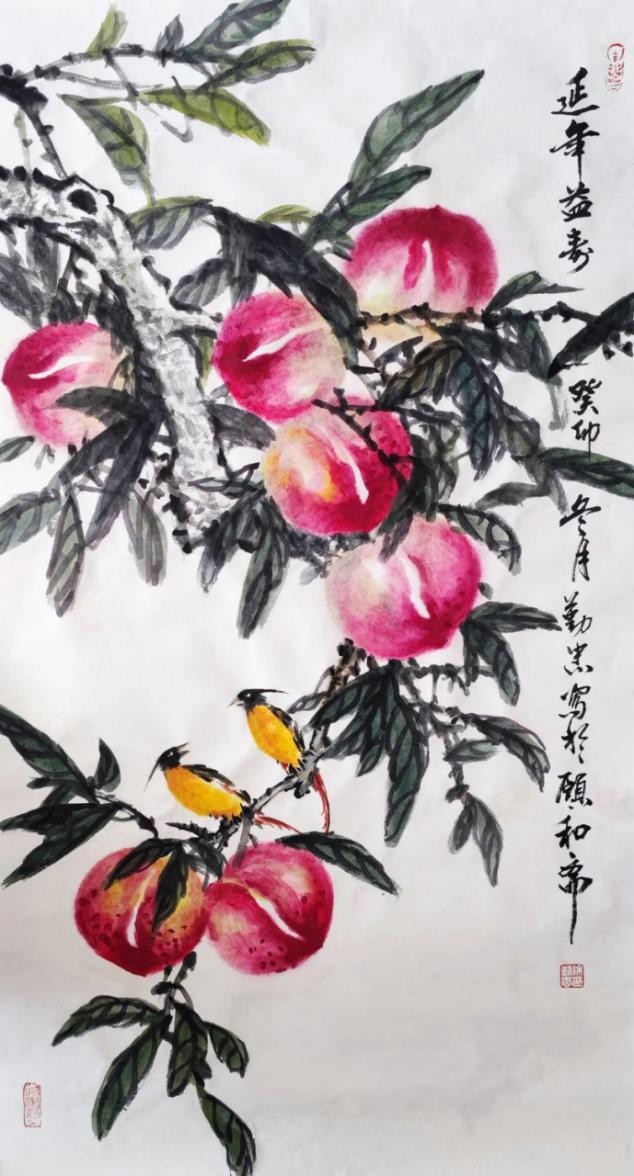 延年益寿
癸卯冬月勤忠写於颐和斋